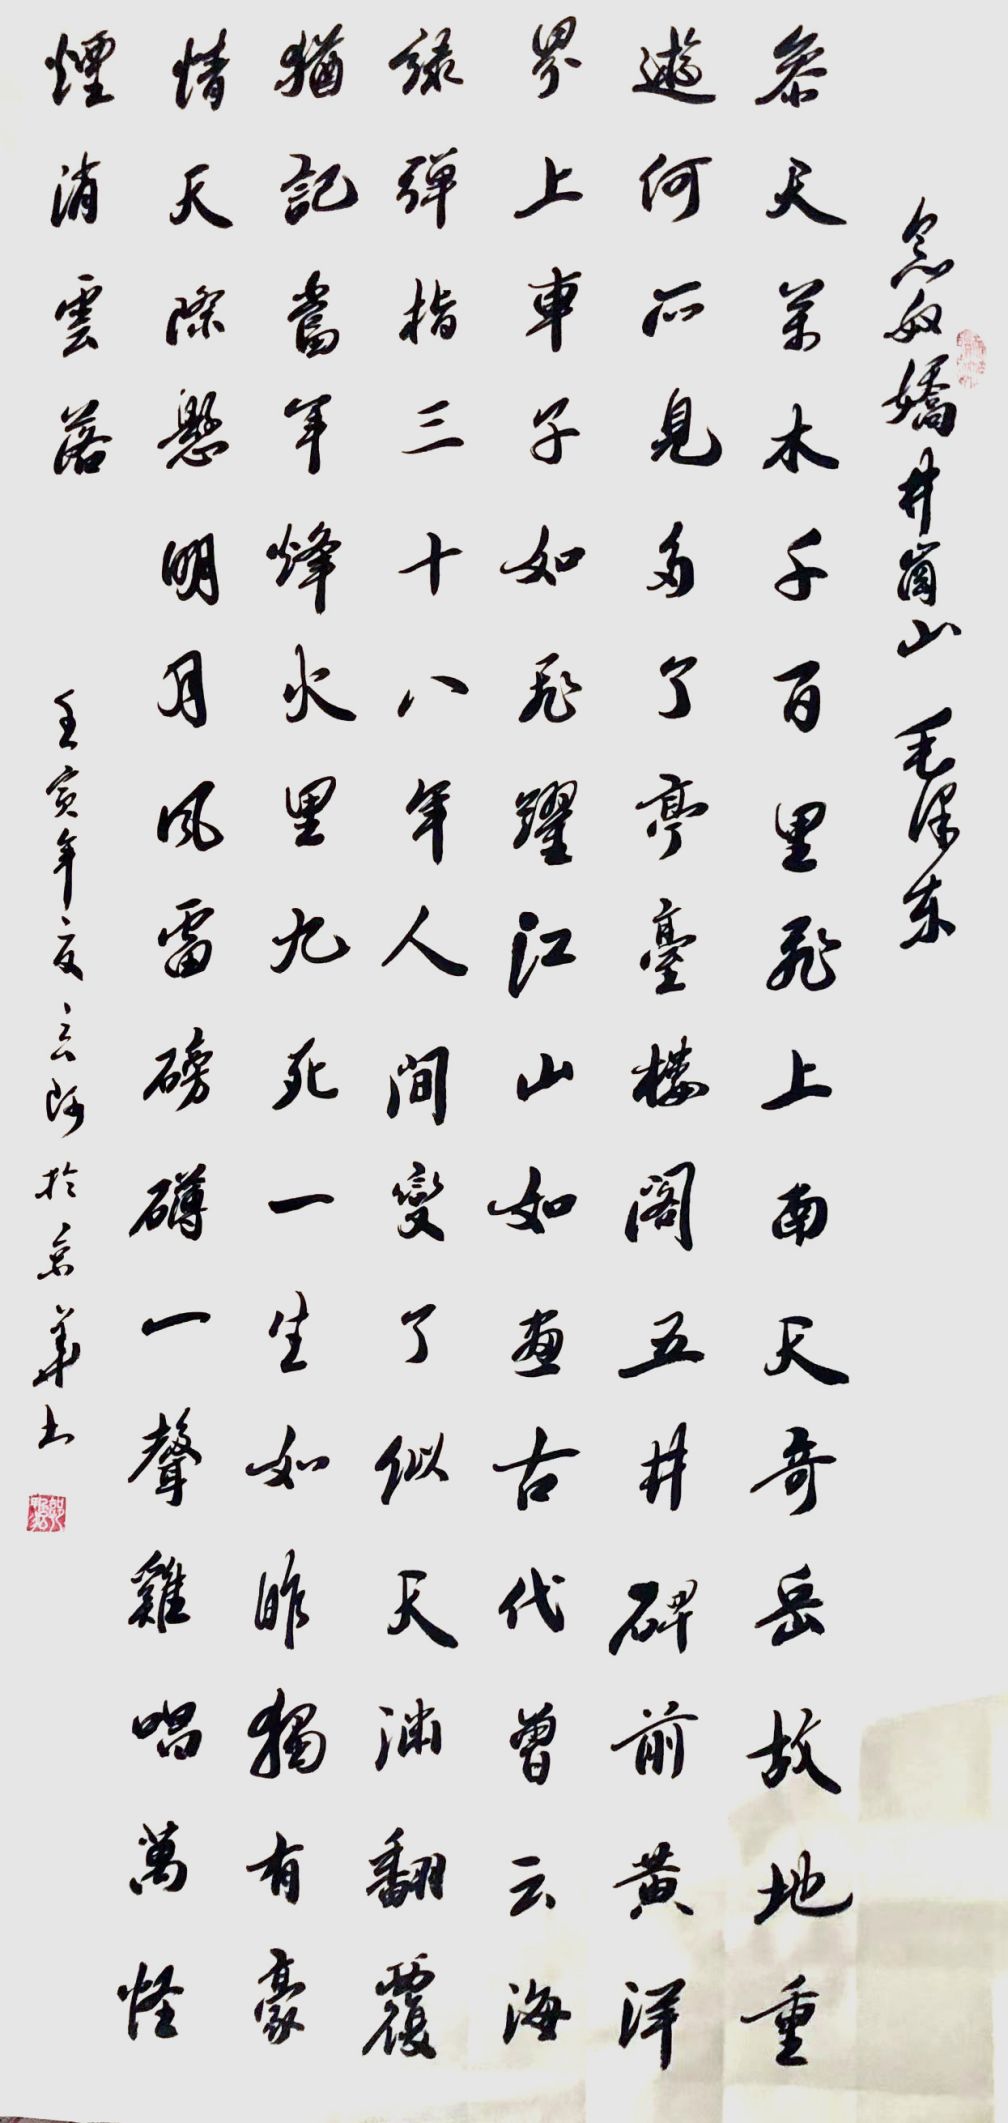 念奴嬌井崗山 毛澤東
參天萬木千百里飛上南天奇岳故地重
遊何所見多了亭臺樓閣五井碑前黃洋
界上車子如飛躍江山如畫古代曾云海
綠彈指三十八年人間變了似天淵翻覆
猶記當年烽火里九死一生如昨獨有豪
情天際懸明月風雷磅礴一聲雞唱萬怪
煙消雲落
壬寅年夏 於京華